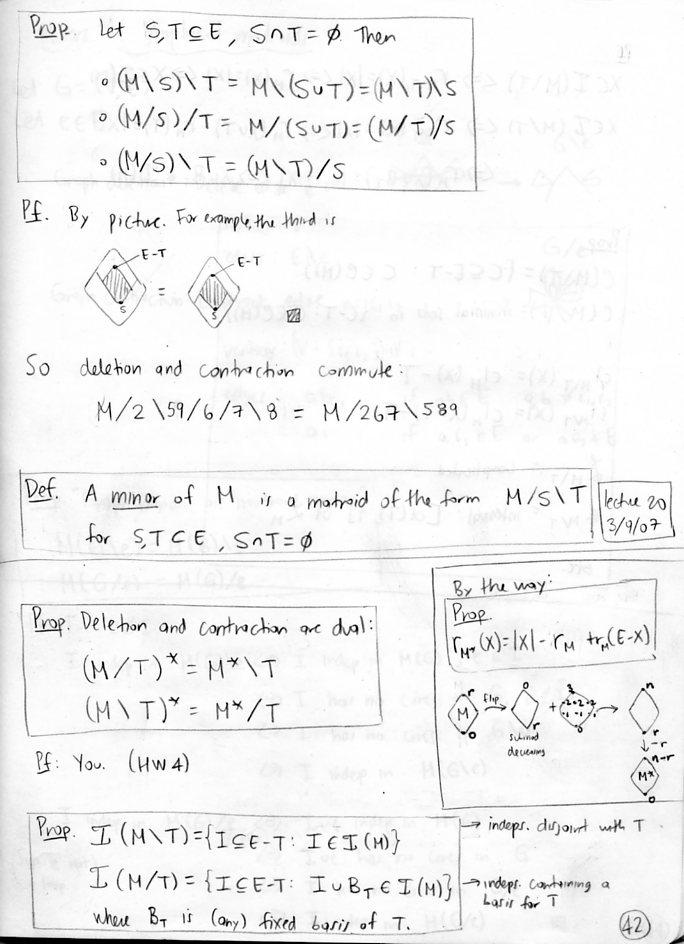 Prop. Let S,T⊆E, S∩T=∅. Then
∘ (M\S)\T = M\(S∪T)=(M\T)\S
∘ (M/S)/T = M/(S∪T)=(M/T)/S
∘ (M/S)\T = (M\T)/S
Pf. By picture. For example, the third is
E-T
S
=
E-T
S
So deletion and contraction commute:
M/2\59/6/7\8 = M/267\589
Def. A minor of M is a matroid of the form M/S\T
for S,T⊆E, S∩T=∅
lecture 20
3/9/07
Prop. Deletion and contraction are dual:
(M/T)* = M*\T
(M\T)* = M*/T
Pf: You. (HW4)
By the way:
Prop.
r_M*(X)=|X|- r_M +r_M(E-X)
r
M
0
flip
0
r
decreasing
+
n
-r
n-r
M*
0
Prop. I(M\T)={I⊆E-T: I∈I(M)}
→ indeps. disjoint with T
I(M/T)={I⊆E-T: I∪B_T∈I(M)}
→ indeps. containing a
basis for T
where B_T is (any) fixed basis of T.
42